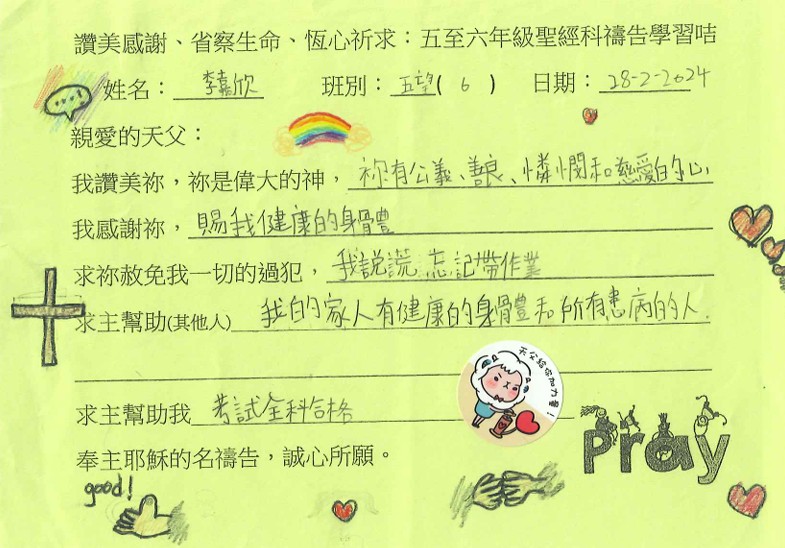 讚美感謝、省察生命、恆心祈求：五至六年級聖經科禱告學習咭
姓名：李嘉欣 班別：五望( 6 ) 日期：28-2-2024
親愛的天父：
我讚美祢，祢是偉大的神，祢有公義、善良、憐憫和慈愛的心
我感謝祢，賜我健康的身體
求祢赦免我一切的過犯，我說謊 忘記帶作業
求主幫助(其他人) 我的家人有健康的身體和所有患病的人.
求主幫助我 考試全科合格
天父給你加力量！
奉主耶穌的名禱告，誠心所願。
Pray
good!